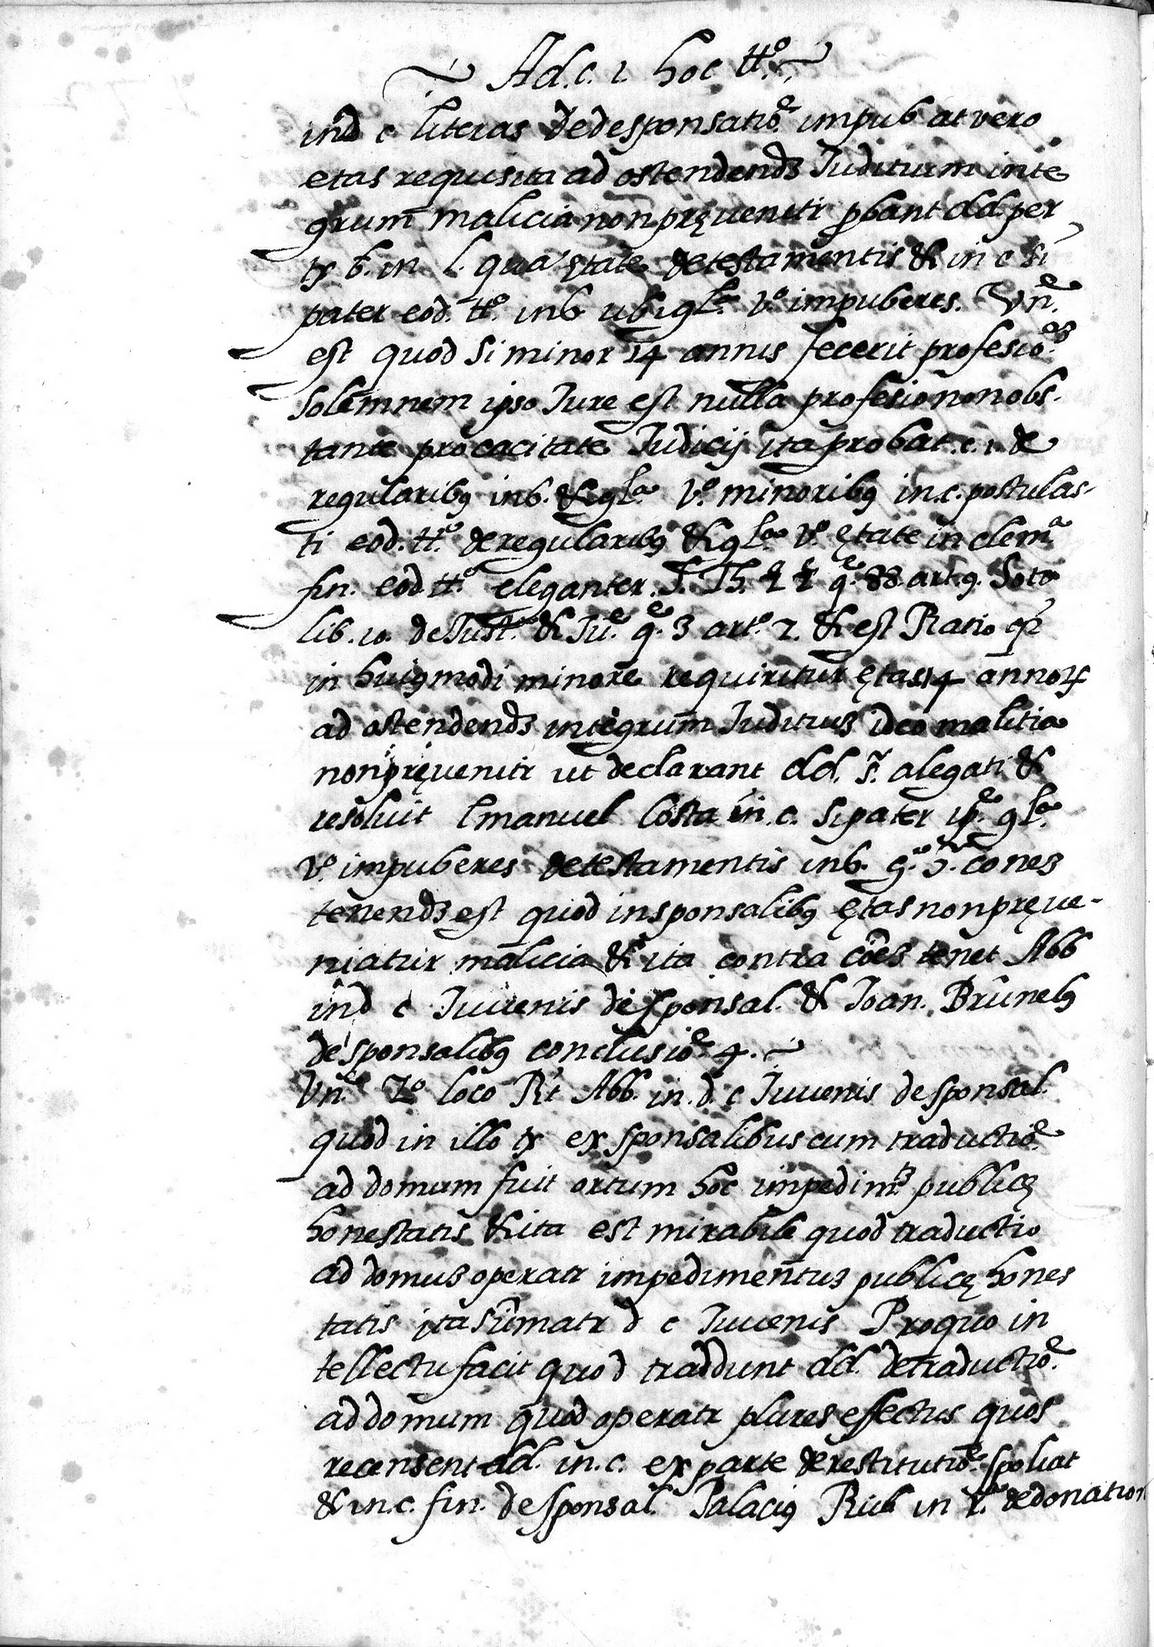 Ad. c. 1 hoc tt.º
in d c literas de desponsatiõe impub at vero
etas requisita ad ostendendȝ Juditium inte
grum malicia non pręvenitr pbant dd. per
tx ƀ. in l. qua ętate de testamentis & in c si
pater eod. tt.º in 6 ubi glª. vº. impuberes. Vnᵉ.
est quod si minor 14 annis fecerit profesioᵉȝ
Solemnem ipso Jure est nulla profesio non obs-
tante procacitate Judicij ita probat. c. 1. de
regularibꝰ in 6. & glª. Vº. minoribꝰ in. c. postulas-
ti eod. tt.º de regularibꝰ & glª vº. ętate in clemª
fin. eod tt.º eleganter. S. Th. 2 2 qᵉ. 88 art. 9. Soto
lib. 10. de Justª. & Juᵉ. qᵉ. 3 artº. 2. & est Ratio qꝛ
in huiꝰmodi minore requiritur ętas 14 annoꝝ
ad ostendendȝ integrum Juditiuȝ ideo malitia
non pręvenitr ut declarant dd. sª. alegati &
resoluit Emanuel Costa in. c. si pater ipᵉ. glª.
vº. impuberes de testamentis in 6. conez
tenendȝ est quod in sponsalibꝰ ętas non pręve-
niatur malicia & ita contra cõez tenet Abb
in d c Juvenis de sponsal. & Joan. Brunelꝰ
de sponsalibꝰ conclusioᵉ 4.
Vnᵉ 2º loco Rt Abb. in. d. c Juvenis de sponsal.
quod in illo tx ex sponsalibus cum traductioᵉ
ad domum fuit ortum hoc impedimᵗȝ publicę
honestatis & ita est mirabile quod traductio
ad domuȝ operatr impedimentuȝ publicę hones
tatis ita sumatr d c Juvenis Pro quo in
tellectu facit quod traddunt dd. de traductioᵉ.
ad domum quod operatr plures effectus quos
recensent dd. in. c. ex parte de restitutioᵉ. spoliat
& in. c. fin. de sponsal. Palaciꝰ Rub in rª. de donation